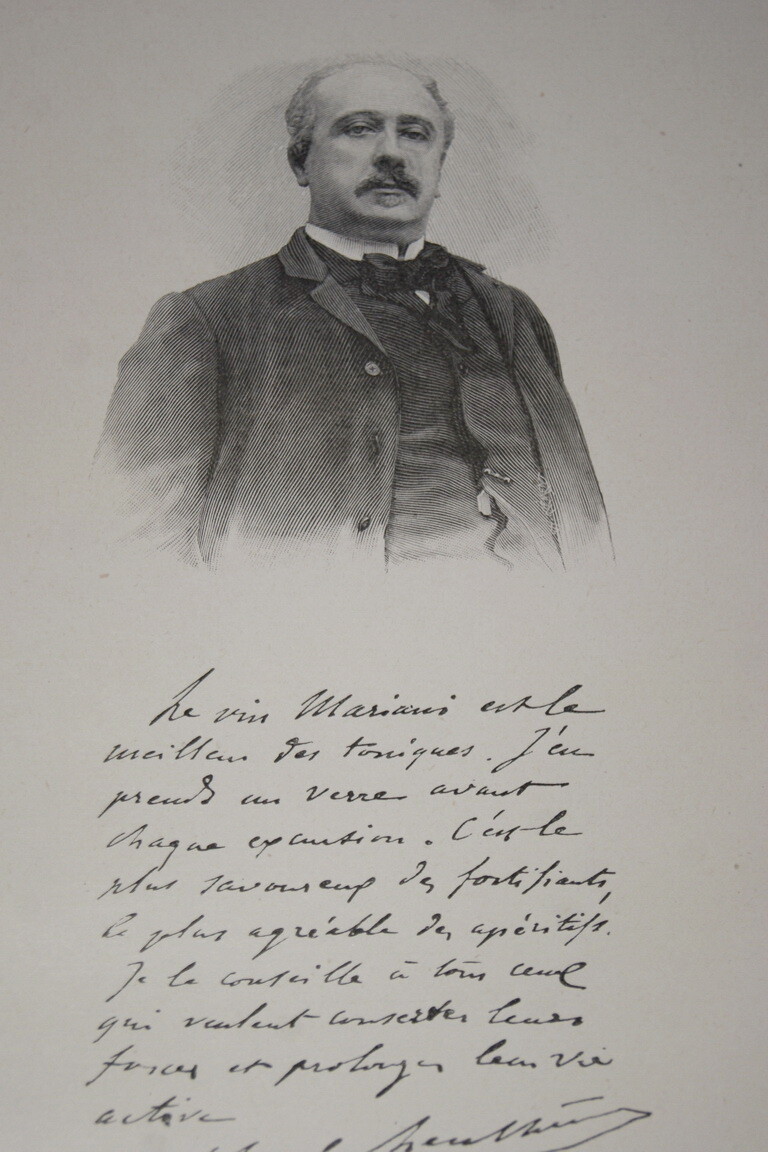 Le vin Mariani est le
meilleur des toniques. J'en
prends un verre avant
chaque excursion. C'est le
plus savoureux des fortifiants,
le plus agréable des apéritifs.
Je le conseille à tous ceux
qui veulent conserver leurs
forces et prolonger leur vie
active